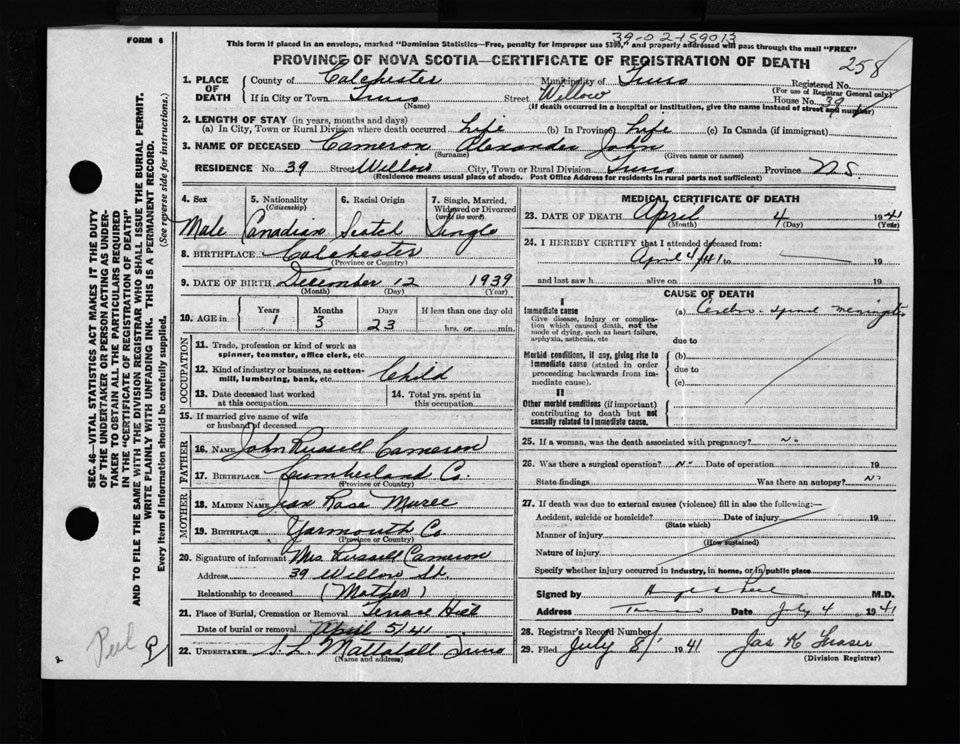 FORM 6
39-02-159013
This form if placed in an envelope, marked "Dominion Statistics—Free, penalty for improper use $300," and properly addressed will pass through the mail "FREE"
PROVINCE OF NOVA SCOTIA—CERTIFICATE OF REGISTRATION OF DEATH 258
1. PLACE OF DEATH County of Colchester Municipality of Truro Registered No.
(For use of Registrar General only)
If in City or Town Truro Street Willow House No. 39
(Name) (If death occurred in a hospital or institution, give the name instead of street and number)
2. LENGTH OF STAY (in years, months and days)
(a) In City, Town or Rural Division where death occurred Life (b) In Province Life (c) In Canada (if immigrant)
3. NAME OF DECEASED Cameron Alexander John
(Surname) (Given name or names)
RESIDENCE No. 39 Street Willow City, Town or Rural Division Truro Province N.S.
(Residence means usual place of abode. Post Office Address for residents in rural parts not sufficient)
4. Sex Male
5. Nationality (Citizenship) Canadian
6. Racial Origin Scotch
7. Single, Married, Widowed or Divorced (write the word) Single
8. BIRTHPLACE Colchester
(Province or Country)
9. DATE OF BIRTH December 12 1939
(Month) (Day) (Year)
10. AGE in Years 1 Months 3 Days 23 If less than one day old
hrs. or min.
OCCUPATION
11. Trade, profession or kind of work as spinner, teamster, office clerk, etc.
12. Kind of industry or business, as cotton-mill, lumbering, bank, etc. Child
13. Date deceased last worked at this occupation
14. Total yrs. spent in this occupation
15. If married give name of wife or husband of deceased
FATHER
16. NAME John Russell Cameron
17. BIRTHPLACE Cumberland Co.
(Province or Country)
MOTHER
18. MAIDEN NAME Jean Rose
19. BIRTHPLACE Yarmouth Co
(Province or Country)
20. Signature of informant Mrs Russell Cameron
Address 39 Willow St.
Relationship to deceased (Mother)
21. Place of Burial, Cremation or Removal Terrace Hill
Date of burial or removal April 5/41
22. UNDERTAKER S. L. Mattatall Truro
(Name and address)
MEDICAL CERTIFICATE OF DEATH
23. DATE OF DEATH April 4 1941
(Month) (Day) (Year)
24. I HEREBY CERTIFY that I attended deceased from:
April 4/41 to 19
and last saw h alive on 19
CAUSE OF DEATH
I
Immediate cause
Give disease, injury or complication which caused death, not the mode of dying, such as heart failure, asphyxia, asthenia, etc
(a) Cerebro-spinal meningitis
due to
Morbid conditions, if any, giving rise to immediate cause (stated in order proceeding backwards from immediate cause).
(b)
due to
(c)
II
Other morbid conditions (if important) contributing to death but not causally related to immediate cause.
25. If a woman, was the death associated with pregnancy? N-
26. Was there a surgical operation? N- Date of operation 19
State findings Was there an autopsy? N-
27. If death was due to external causes (violence) fill in also the following:—
Accident, suicide or homicide? Date of injury 19
(State which)
Manner of injury
(How sustained)
Nature of injury
Specify whether injury occurred in industry, in home, or in public place
Signed by M.D.
Address Truro Date July 4 1941
28. Registrar's Record Number
29. Filed July 8/ 1941 Jas K Fraser
(Division Registrar)
SEC. 46—VITAL STATISTICS ACT MAKES IT THE DUTY
OF THE UNDERTAKER OR PERSON ACTING AS UNDER-
TAKER TO OBTAIN ALL THE PARTICULARS REQUIRED
IN THE "CERTIFICATE OF REGISTRATION OF DEATH"
AND TO FILE THE SAME WITH THE DIVISION REGISTRAR WHO SHALL ISSUE THE BURIAL PERMIT.
WRITE PLAINLY WITH UNFADING INK. THIS IS A PERMANENT RECORD.
Every item of information should be carefully supplied. (See reverse side for instructions.)
Peel